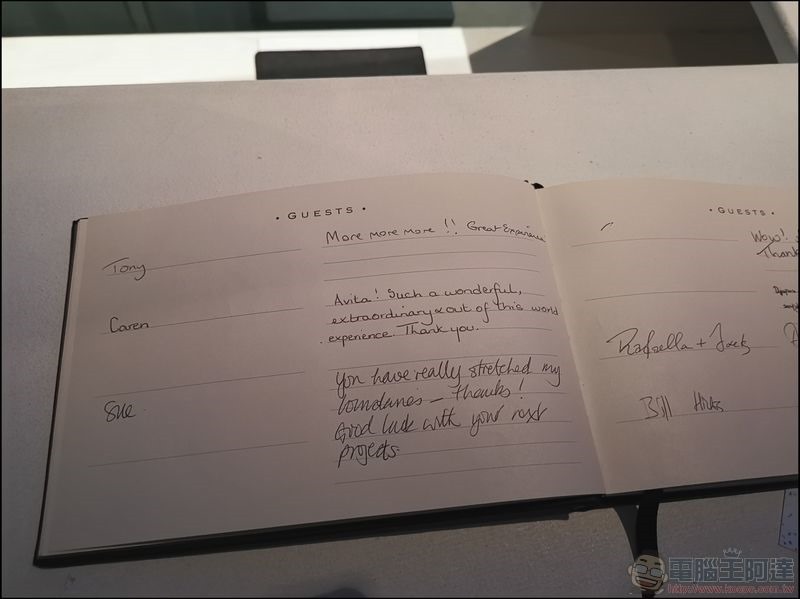 • GUESTS •
Tony
More more more !! Great Experience
Caren
Avita! Such a wonderful,
extraordinary & out of this world
experience. Thank you.
Sue
You have really stretched my
boundaries – thanks!
Good luck with your next
projects.
• GUESTS •
Wow!
Thank
Rafaella +
Bill Hicks
電腦王阿達
http://www.kocpc.com.tw